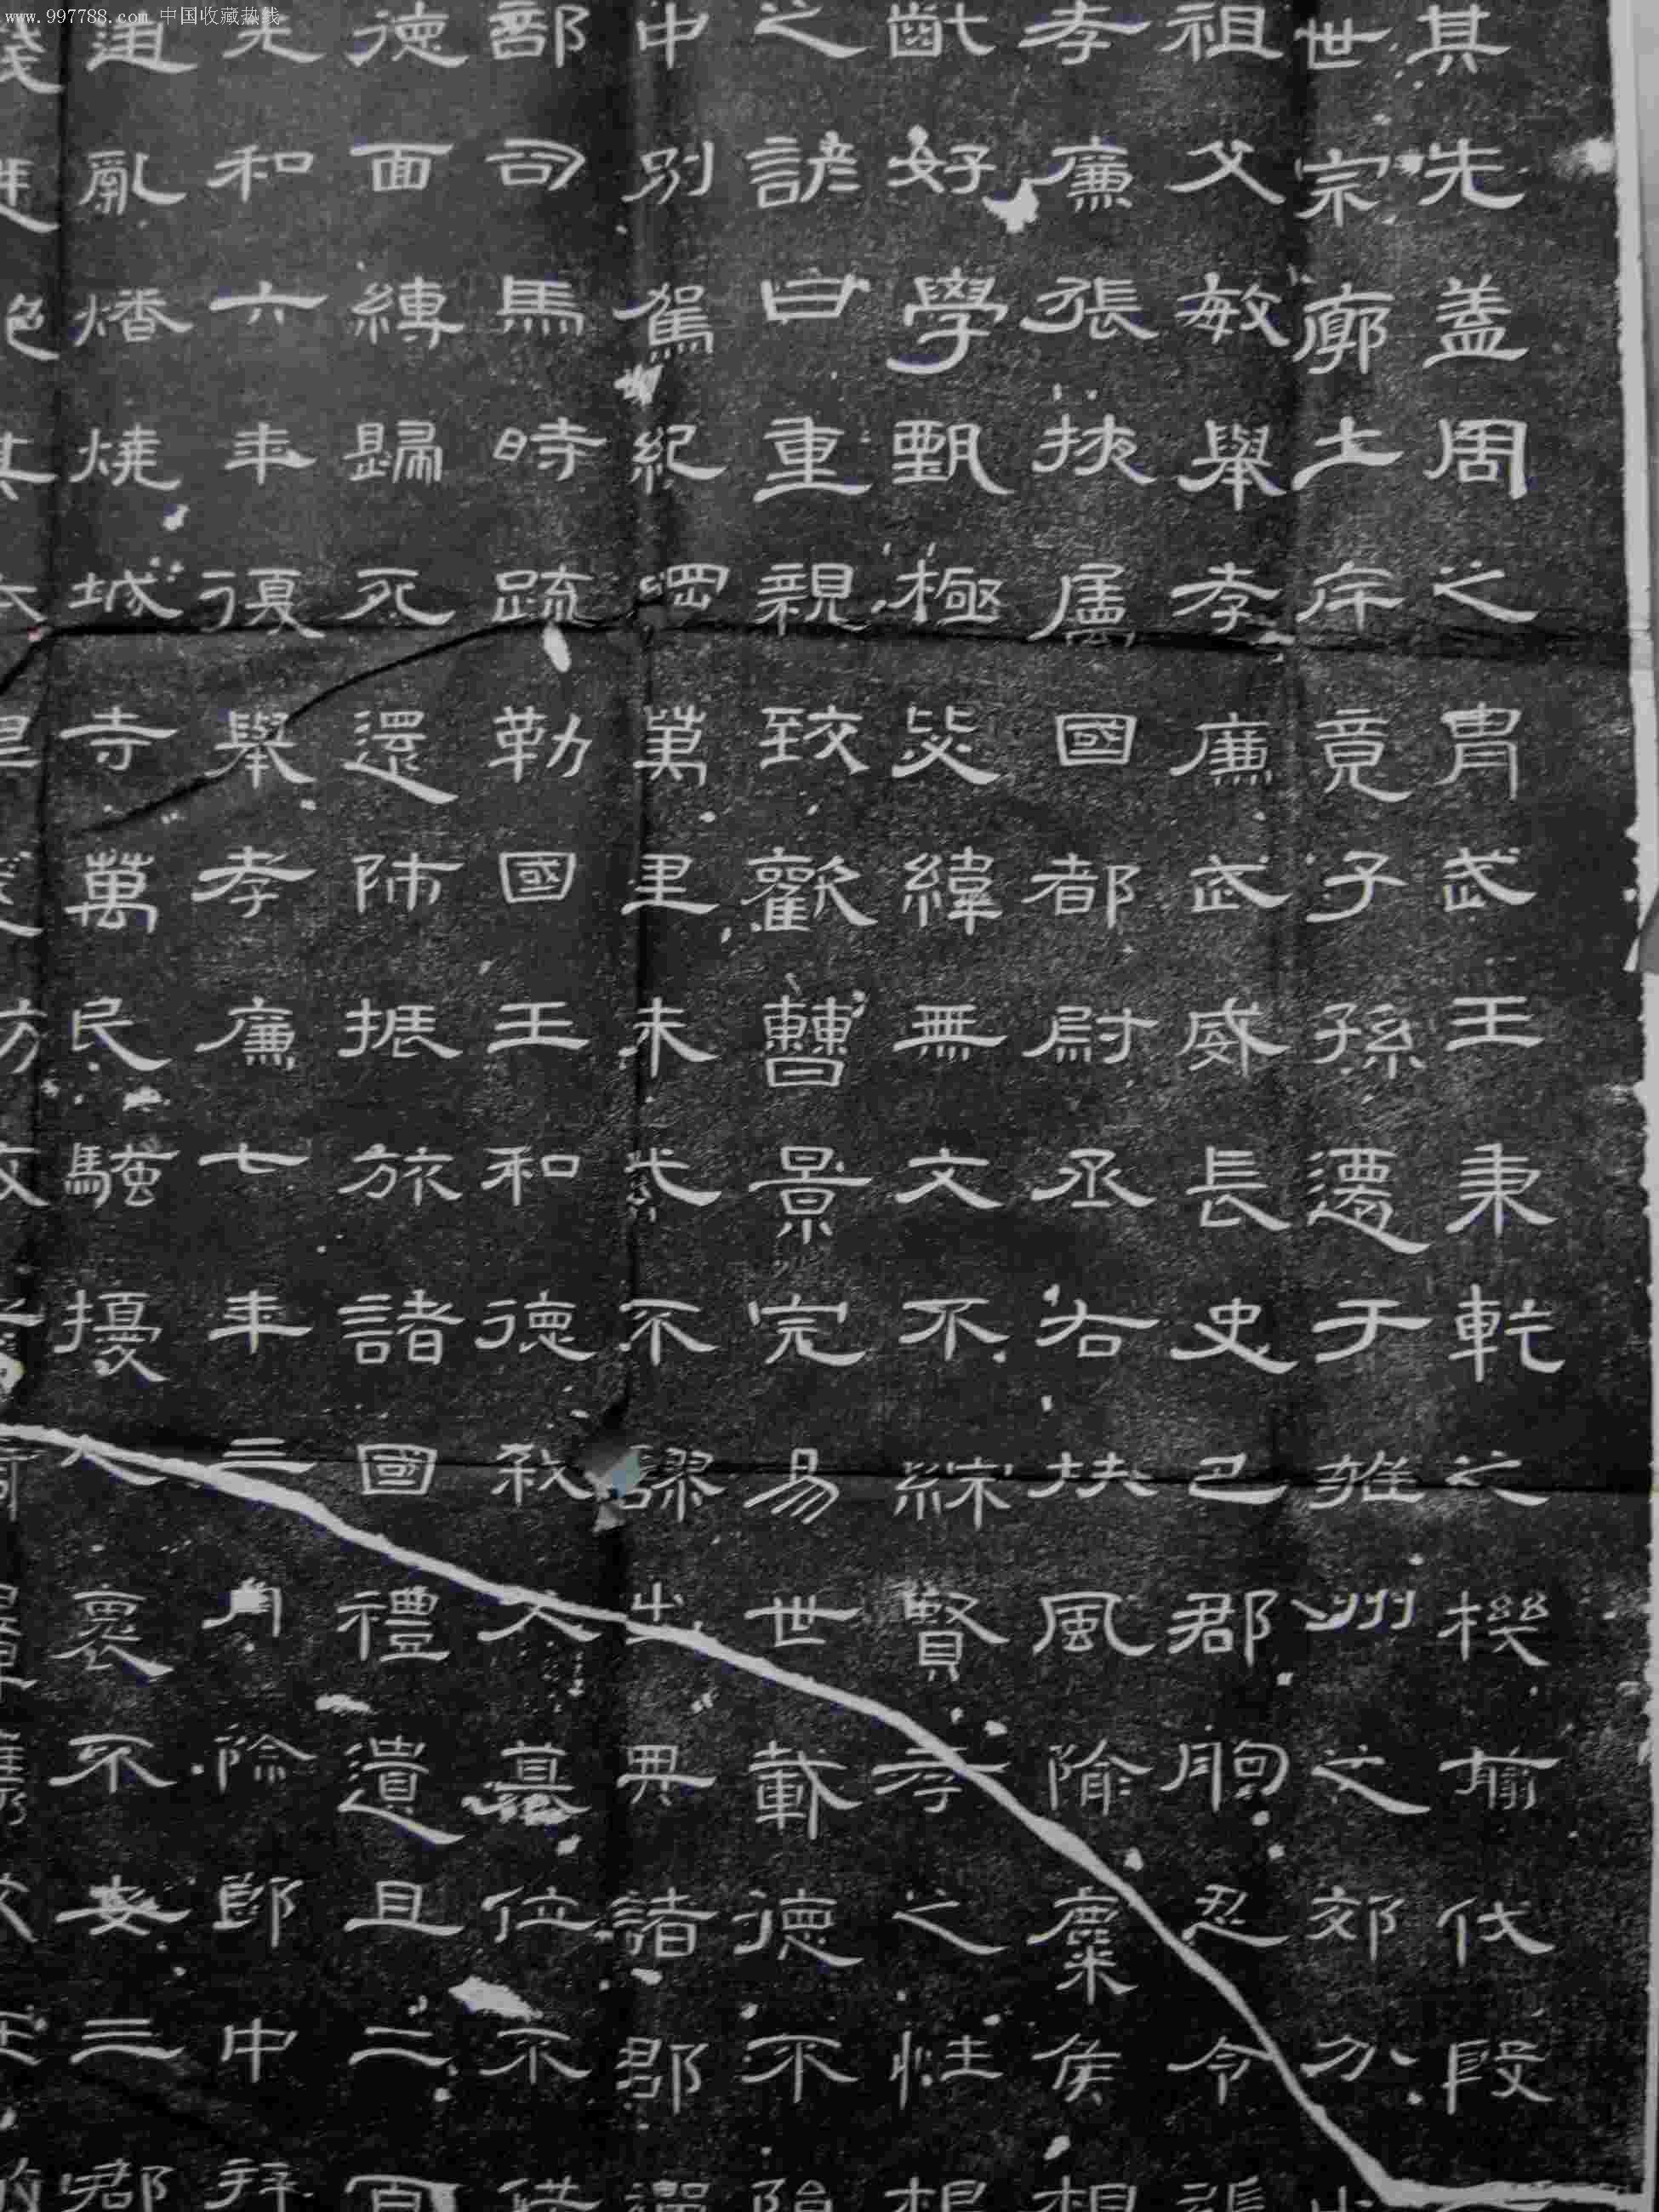 www.997788.com 中国收藏热线
其先蓋周之胄武王秉乾之機翦伐殷
世宗廓土斥竟子孫遷于雍州之郊分
祖父敏舉孝廉武威長史巴郡朐忍令張
孝廉張掖屬國都尉丞右扶風隃麋侯相
齔好學甄極毖緯無文不綜賢孝之性根
之諺曰重親致歡曹景完易世載德不隕
中別駕紀綱萬里朱紫不謬出典諸郡彈
部司馬時疏勒國王和德弒父篡位不供
德面縛歸死還師振旅諸國禮遺且二百
光和六年復舉孝廉七年三月除郎中拜
造亂燔燒城寺萬民騷擾人裹不安三郡